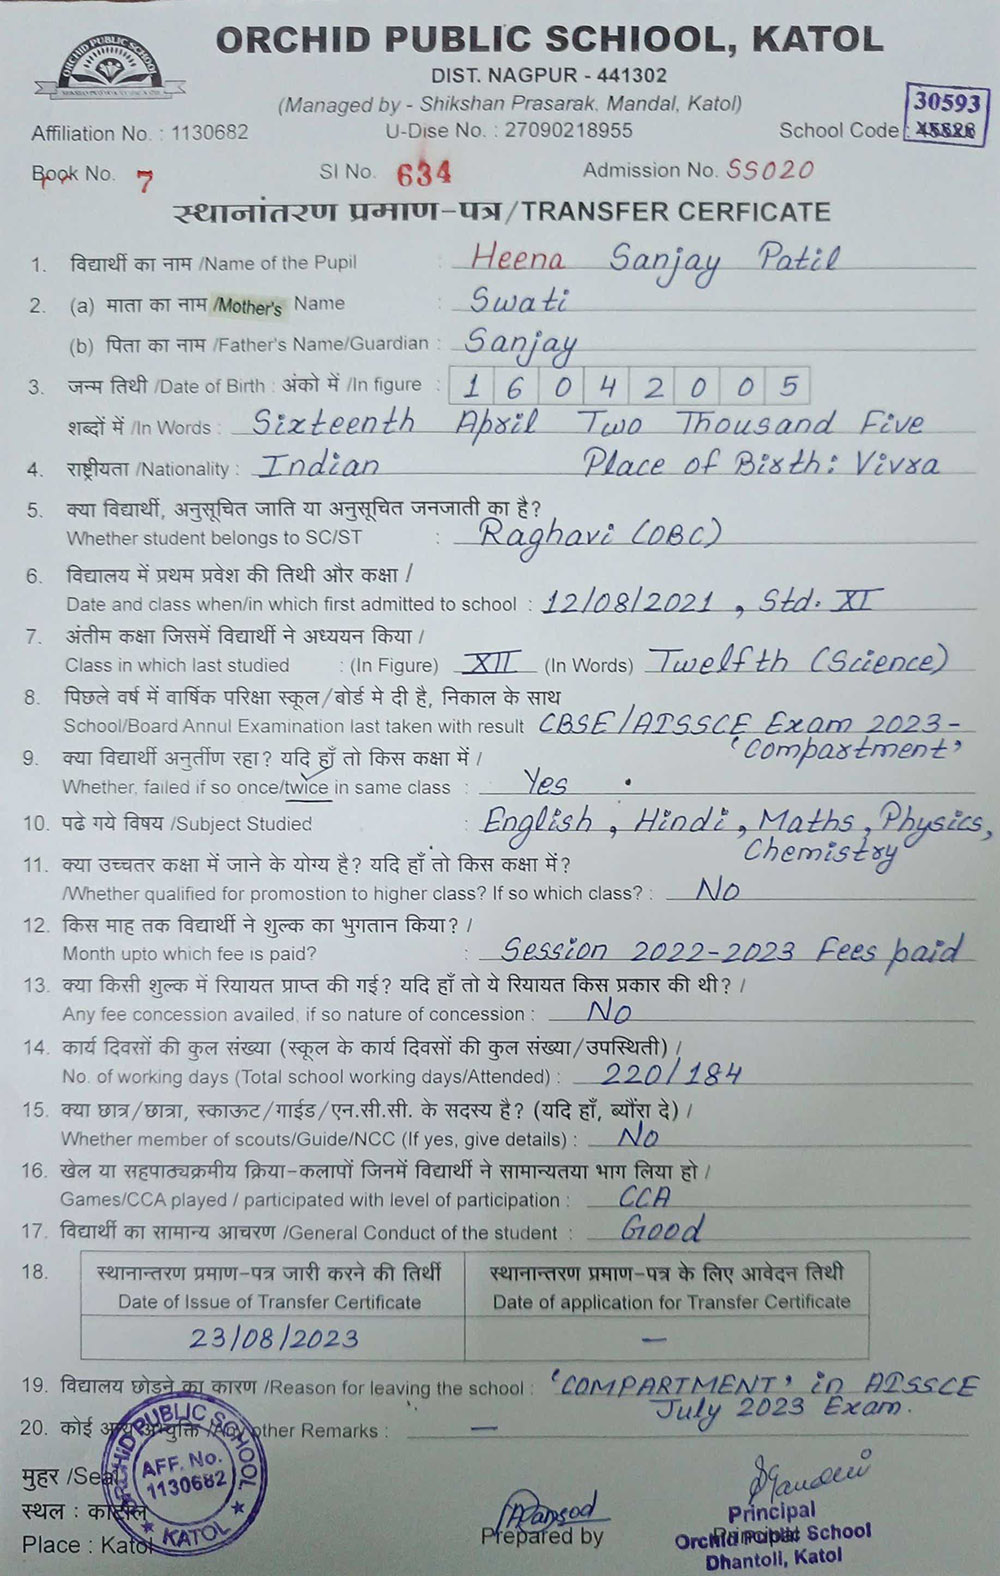 ORCHID PUBLIC SCHIOOL, KATOL
DIST. NAGPUR - 441302
(Managed by - Shikshan Prasarak, Mandal, Katol)
30593
Affiliation No. : 1130682 U-Dise No. : 27090218955 School Code :
Book No. 7 SI No. 634 Admission No. SS020
स्थानांतरण प्रमाण-पत्र/TRANSFER CERFICATE
1. विद्यार्थी का नाम /Name of the Pupil : Heena Sanjay Patil
2. (a) माता का नाम /Mother's Name : Swati
(b) पिता का नाम /Father's Name/Guardian : Sanjay
3. जन्म तिथी /Date of Birth : अंको में /In figure : 1 6 0 4 2 0 0 5
शब्दों में /In Words : Sixteenth April Two Thousand Five
4. राष्ट्रीयता /Nationality : Indian Place of Birth: Vivra
5. क्या विद्यार्थी, अनुसूचित जाति या अनुसूचित जनजाती का है?
Whether student belongs to SC/ST : Raghavi (OBC)
6. विद्यालय में प्रथम प्रवेश की तिथी और कक्षा /
Date and class when/in which first admitted to school : 12/08/2021, Std. XI
7. अंतीम कक्षा जिसमें विद्यार्थी ने अध्ययन किया /
Class in which last studied : (In Figure) XII (In Words) Twelfth (Science)
8. पिछले वर्ष में वार्षिक परिक्षा स्कूल/बोर्ड मे दी है, निकाल के साथ
School/Board Annul Examination last taken with result CBSE/AISSCE Exam 2023-
'Compartment'
9. क्या विद्यार्थी अनुर्तीण रहा? यदि हाँ तो किस कक्षा में /
Whether, failed if so once/twice in same class : Yes
10. पढे गये विषय /Subject Studied : English, Hindi, Maths, Physics,
Chemistry
11. क्या उच्चतर कक्षा में जाने के योग्य है? यदि हाँ तो किस कक्षा में?
/Whether qualified for promostion to higher class? If so which class? : No
12. किस माह तक विद्यार्थी ने शुल्क का भुगतान किया? /
Month upto which fee is paid? : Session 2022-2023 Fees paid
13. क्या किसी शुल्क में रियायत प्राप्त की गई? यदि हाँ तो ये रियायत किस प्रकार की थी? /
Any fee concession availed, if so nature of concession : No
14. कार्य दिवसों की कुल संख्या (स्कूल के कार्य दिवसों की कुल संख्या/उपस्थिती) /
No. of working days (Total school working days/Attended) : 220/184
15. क्या छात्र/छात्रा, स्काऊट/गाईड/एन.सी.सी. के सदस्य है? (यदि हाँ, ब्यौंरा दे) /
Whether member of scouts/Guide/NCC (If yes, give details) : No
16. खेल या सहपाठ्यक्रमीय क्रिया-कलापों जिनमें विद्यार्थी ने सामान्यतया भाग लिया हो /
Games/CCA played / participated with level of participation : CCA
17. विद्यार्थी का सामान्य आचरण /General Conduct of the student : Good
18. स्थानान्तरण प्रमाण-पत्र जारी करने की तिर्थी स्थानान्तरण प्रमाण-पत्र के लिए आवेदन तिथी
Date of Issue of Transfer Certificate Date of application for Transfer Certificate
23/08/2023 —
19. विद्यालय छोड़ने का कारण /Reason for leaving the school : 'COMPARTMENT' in AISSCE
July 2023 Exam.
20. कोई अन्य अभ्युक्ति /Any other Remarks : —
ORCHID PUBLIC SCHOOL
AFF. No.
1130682
KATOL
मुहर /Seal
स्थल : काटोल
Place : Katol
Prepared by
Principal
Orchid Public School
Dhantoli, Katol